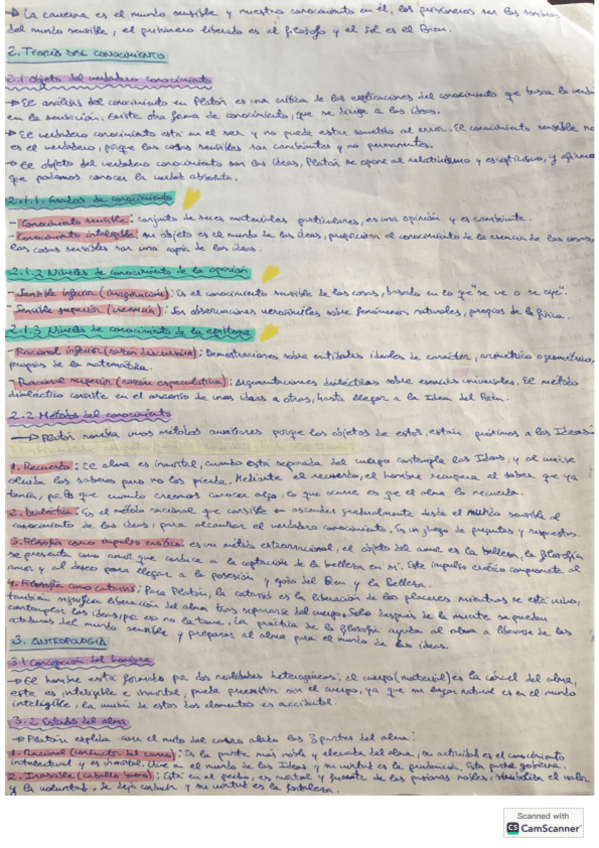 → La caverna es el mundo sensible y nuestro conocimiento en él, los prisioneros son los hombres
del mundo sensible, el prisionero liberado es el filósofo y el Sol es el Bien.
2. TEORÍA DEL CONOCIMIENTO
2.1 Objeto del verdadero conocimiento
→ El análisis del conocimiento en Platón es una crítica de las explicaciones del conocimiento que buscan la verdad
en la sensación. Existe otra forma de conocimiento, que se dirige a las ideas.
→ El verdadero conocimiento está en el ser y no puede estar sometido al error. El conocimiento sensible no
es el verdadero, porque las cosas sensibles son cambiantes y no permanentes.
→ El objeto del verdadero conocimiento son las ideas, Platón se opone al relativismo y escepticismo, y afirma
que podamos conocer la verdad absoluta.
2.1.1. Grados de conocimiento
- Conocimiento sensible: conjunto de seres materiales particulares, es una opinión y es cambiante.
- Conocimiento inteligible: su objeto es el mundo de las ideas, proporciona el conocimiento de la esencia de las cosas,
las cosas sensibles son una copia de las ideas.
2.1.2 Niveles de conocimiento de la opinión
- Sensible inferior (imaginación): Es el conocimiento sensible de las cosas, basado en lo que "se ve o se oye".
- Sensible superior (creencia): Son observaciones verosímiles sobre fenómenos naturales, propias de la física.
2.1.3 Niveles de conocimiento de la episteme
- Racional inferior (razón discursiva): Demostraciones sobre entidades ideales de carácter, aritmético o geométrico,
propias de la matemática.
- Racional superior (razón especulativa): Argumentaciones dialécticas sobre esencias universales. El método
dialéctico consiste en el ascenso de unas ideas a otras, hasta llegar a la Idea del Bien.
2.2 Métodos del conocimiento
→ Platón nombra unos métodos auxiliares porque los objetos de estos están próximos a las Ideas:
1. Recuerdo: El alma es inmortal, cuando está separada del cuerpo contempla las Ideas, y al unirse
olvida los saberes pero no los pierde. Mediante el recuerdo, el hombre recupera el saber que ya
tenía, por lo que cuando creemos conocer algo, lo que ocurre es que el alma lo recuerda.
2. Dialéctica: Es el método racional que consiste en ascender gradualmente desde el mundo sensible al
conocimiento de las ideas, para alcanzar el verdadero conocimiento. Es un juego de preguntas y respuestas.
3. Filosofía como impulso erótico: es un método extrarracional, el objeto del amor es la belleza, la filosofía
se presenta como amor que conduce a la captación de la belleza en sí. Este impulso erótico compromete al
amor y al deseo para llegar a la posesión y goce del Bien y la Belleza.
4. Filosofía como catarsis: Para Platón, la catarsis es la liberación de los placeres mientras se está vivo,
también significa liberación del alma tras separarse del cuerpo. Solo después de la muerte se pueden
contemplar las ideas, por eso no la teme. La práctica de la filosofía ayuda al alma a liberarse de las
ataduras del mundo sensible y preparar al alma para el mundo de las ideas.
3. ANTROPOLOGÍA
3.1 Concepción del hombre
→ El hombre está formado por dos realidades heterogéneas: el cuerpo (material) es la cárcel del alma,
esta es inteligible e inmortal, puede preexistir sin el cuerpo, ya que su lugar natural es en el mundo
inteligible, la unión de estos dos elementos es accidental.
3.2 Estados del alma
→ Platón explica con el mito del carro alado las 3 partes del alma:
1. Racional (conductor del carro): Es la parte más noble y elevada del alma, su actividad es el conocimiento
intelectual y es inmortal. Vive en el mundo de las Ideas y su virtud es la prudencia. Esta parte gobierna.
2. Irascible (caballo bueno): Está en el pecho, es mortal y fuente de las pasiones nobles, simboliza el valor
y la voluntad. Se deja conducir y su virtud es la fortaleza.
Scanned with
CS CamScanner